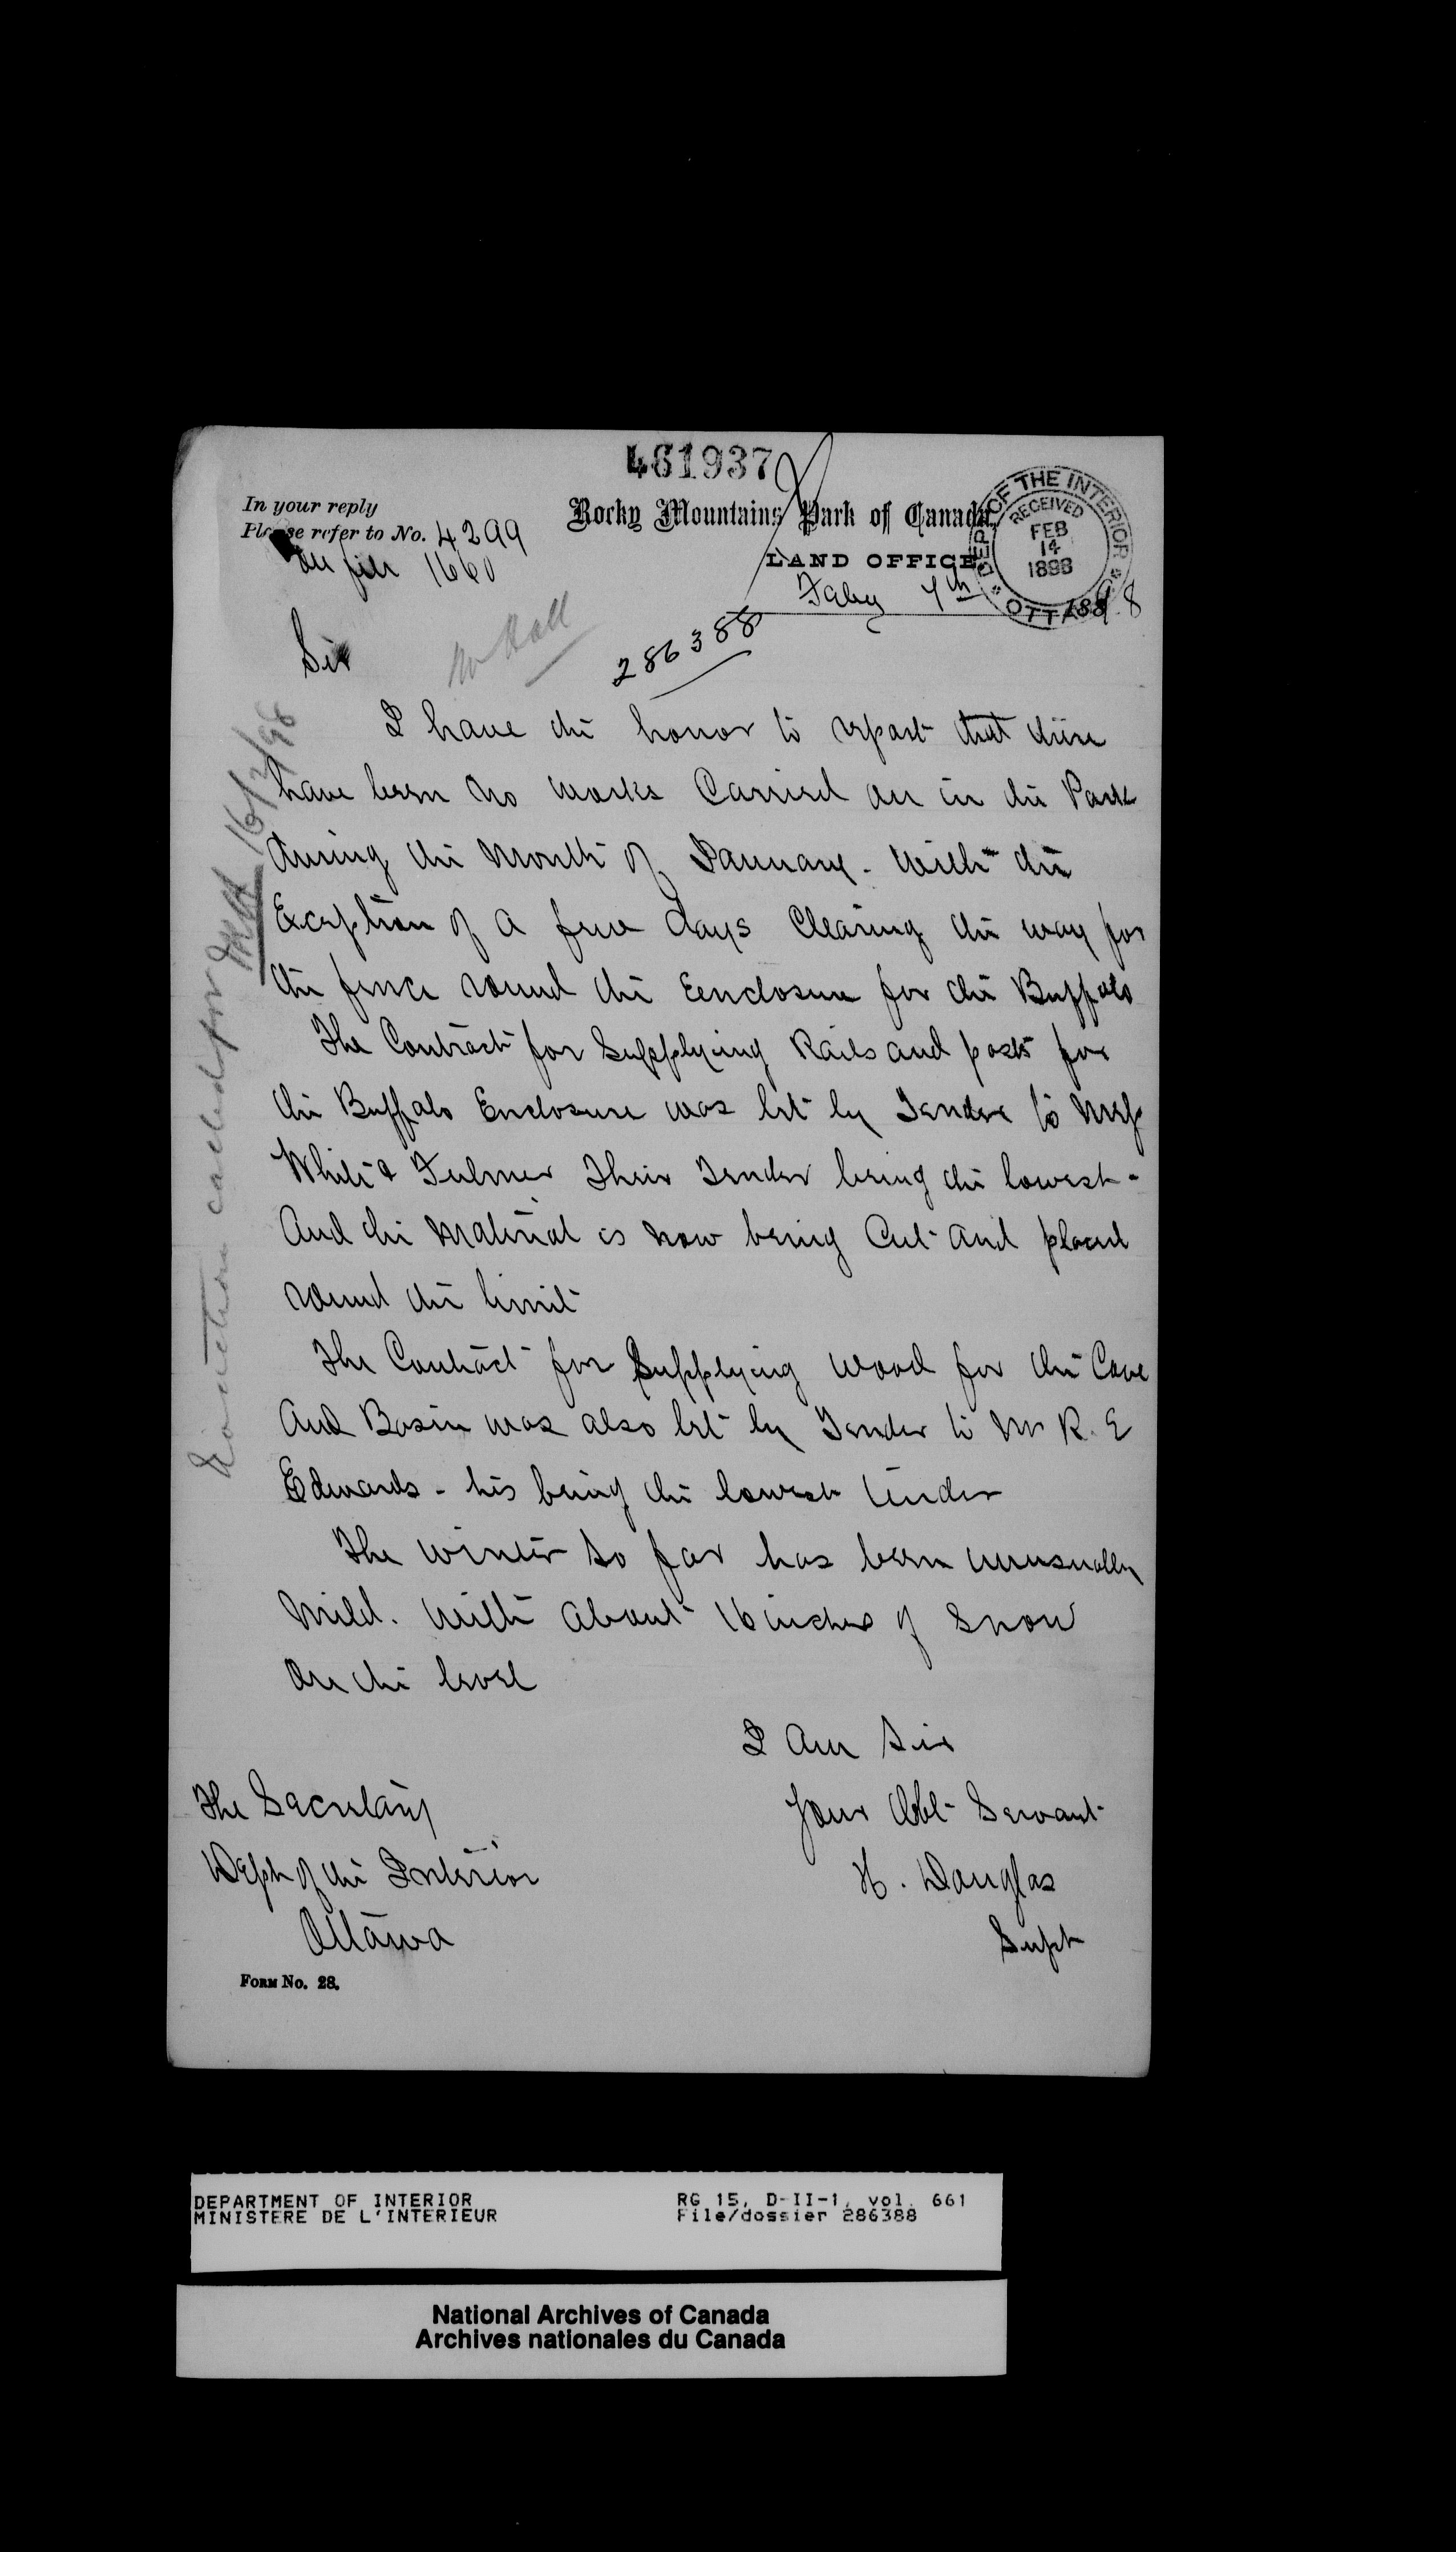 461937
In your reply
Please refer to No. 4299
on file 1660
Rocky Mountains Park of Canada.
LAND OFFICE
DEPT OF THE INTERIOR
RECEIVED
FEB
14
1898
OTTAWA
Feby 7th 1898
286388
Mr Hall
Sir
I have the honor to report that there
have been no works Carried on in the Park
during the Month of January. With the
Exception of a few days Clearing the way for
the fence round the Eenclosure for the Buffalo
The Contract for Supplying Rails and posts for
the Buffalo Enclosure was let by Tender to
White & Fulmer Their Tender being the lowest -
And the Material is now being Cut and placed
round the limit
The Contract for Supplying Wood for the Cave
And Basin was also let by Tender to Mr R. E
Edwards - his being the lowest tender
The winter so far has been unusually
Mild. With about 16 inches of Snow
on the level
I Am Sir
Your Obt Servant
H. Douglas
Supt
The Secretary
Dept of the Interior
Ottawa
FORM No. 28.
No action called for
16/2/98
DEPARTMENT OF INTERIOR
MINISTERE DE L'INTERIEUR
RG 15, D-II-1, vol. 661
File/dossier 286388
National Archives of Canada
Archives nationales du Canada